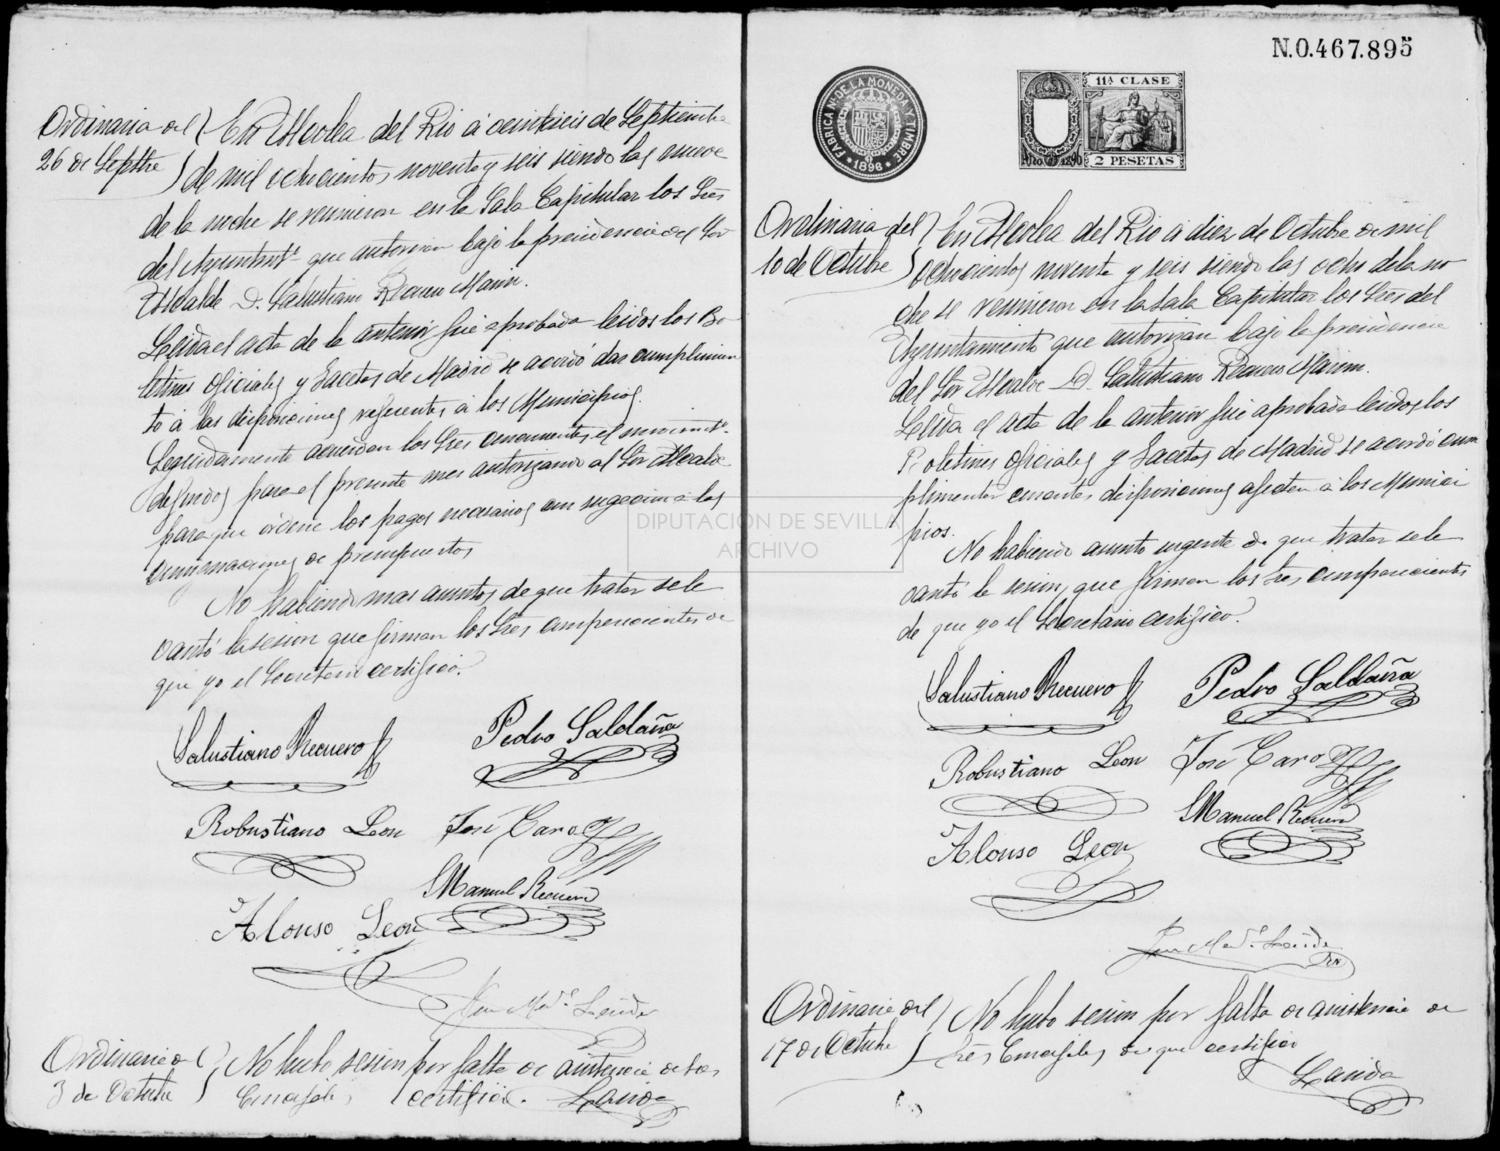 Ordinaria del
26 de Septbre
En Alcolea del Rio á veintiseis de Septiembre
de mil ochocientos noventa y seis siendo las nueve
de la noche se reunieron en la Sala Capitular los Sres
del Ayuntmto que autorizan bajo la presidencia del Sor
Alcalde D. Salustiano Recuero Marin.
Leida el acta de la anterior fué aprobada leidos los Bo
letines oficiales y Gacetas de Madrid se acordó dar cumplimien
to á las disposiciones referentes á los Municipios.
Seguidamente acuerdan los Sres concurrentes, el
de fondos para el presente mes autorizando al Sor Alcalde
para que ordene los pagos necesarios con sugecion á las
consignaciones de presupuestos
No habiendo mas asuntos de que tratar se le
vantó la sesion que firman los Sres comparecientes de
que yo el Secretario certifico.
Salustiano Recuero
Pedro Saldaña
Robustiano Leon
José Caro
Manuel Recuero
Alonso Leon
Ordinaria del
3 de Octubre
No hubo sesion por falta de asistencia de los
Concejales certifico.
N.0.467.895
FABRICA N. DE LA MONEDA Y TIMBRE
1896
11ª CLASE
Año 1896
2 PESETAS
Ordinaria del
10 de Octubre
En Alcolea del Rio á diez de Octubre de mil
ochocientos noventa y seis siendo las ocho de la no
che se reunieron en la Sala Capitular los Sres del
Ayuntamiento que autorizan bajo la presidencia
del Sor Alcalde D. Salustiano Recuero Marin.
Leida el acta de la anterior fué aprobada leidos los
Boletines oficiales y Gacetas de Madrid se acordó cum
plimentar cuantas disposiciones afecten á los Munici
pios.
No habiendo asunto urgente de que tratar se le
vantó la sesion, que firman los Sres comparecientes
de que yo el Secretario certifico.
Salustiano Recuero
Pedro Saldaña
Robustiano Leon
José Caro
Manuel Recuero
Alonso Leon
Ordinaria del
17 de Octubre
No hubo sesion por falta de asistencia de
Sres Concejales, de que certifico
DIPUTACIÓN DE SEVILLA
ARCHIVO